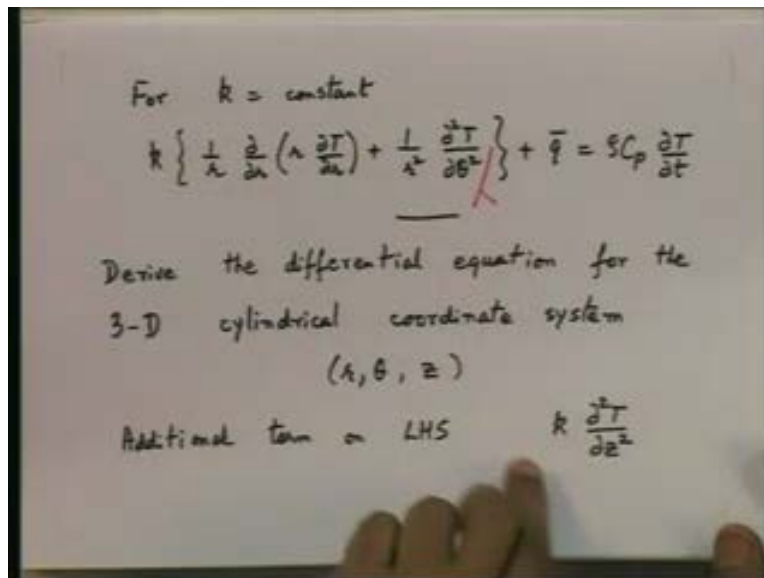 For k = constant
k { 1/r ∂/∂r (r ∂T/∂r) + 1/r² ∂²T/∂θ² } + q̄ = ρCp ∂T/∂t
Derive the differential equation for the
3-D cylindrical coordinate system
(r, θ, z)
Additional term on LHS k ∂²T/∂z²